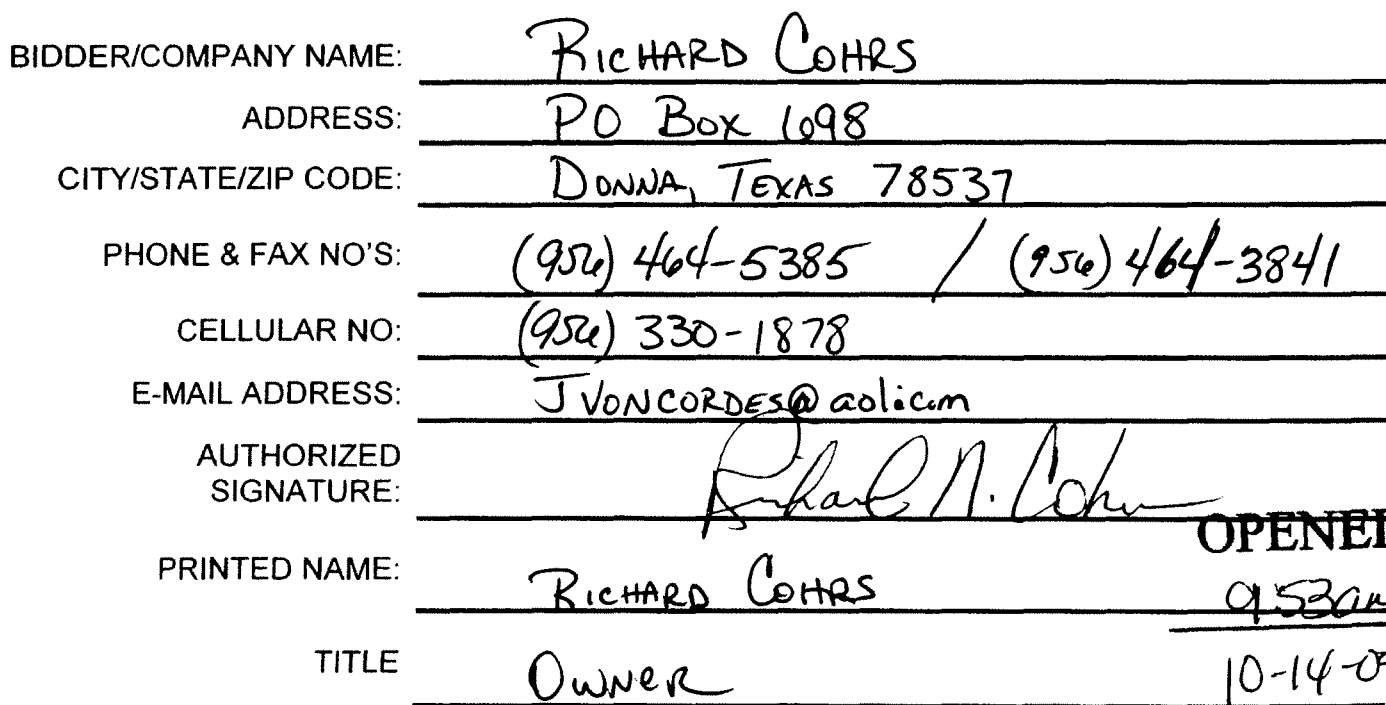 BIDDER/COMPANY NAME: RICHARD COHRS
ADDRESS: PO BOX 698
CITY/STATE/ZIP CODE: DONNA, TEXAS 78537
PHONE & FAX NO'S: (956) 464-5385 / (956) 464-3841
CELLULAR NO: (956) 330-1878
E-MAIL ADDRESS: JVONCORDES@aol.com
AUTHORIZED
SIGNATURE: Richard N. Cohrs
OPENED
PRINTED NAME: RICHARD COHRS 9:53am
TITLE OWNER 10-14-0